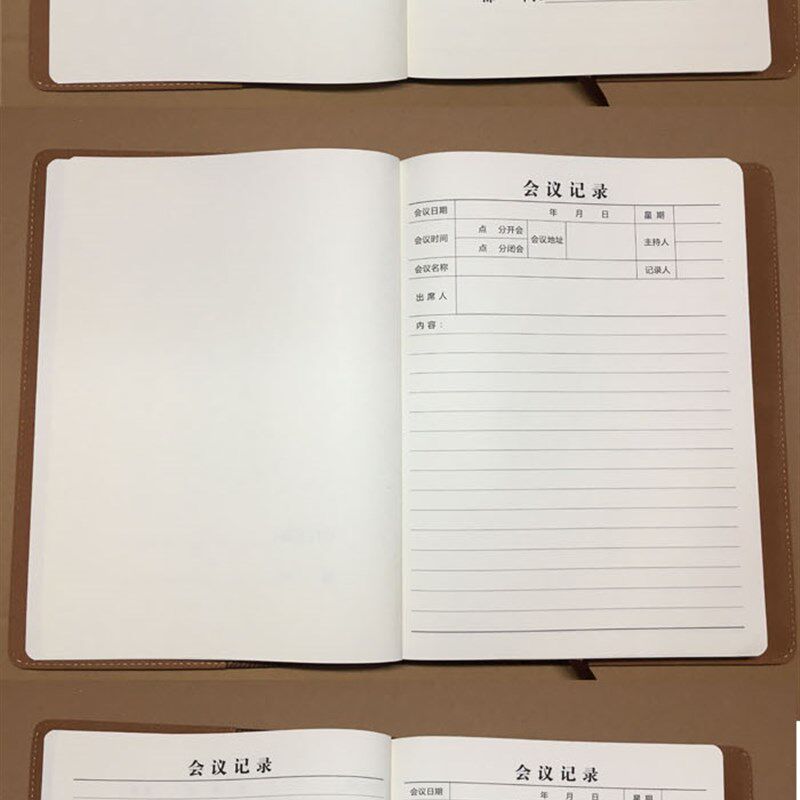 会议记录
会议日期 年 月 日 星期
会议时间 点 分开会 会议地址 主持人
点 分闭会
会议名称 记录人
出席人
内容：
会议记录
会议记录
会议日期 年 月 日 星期